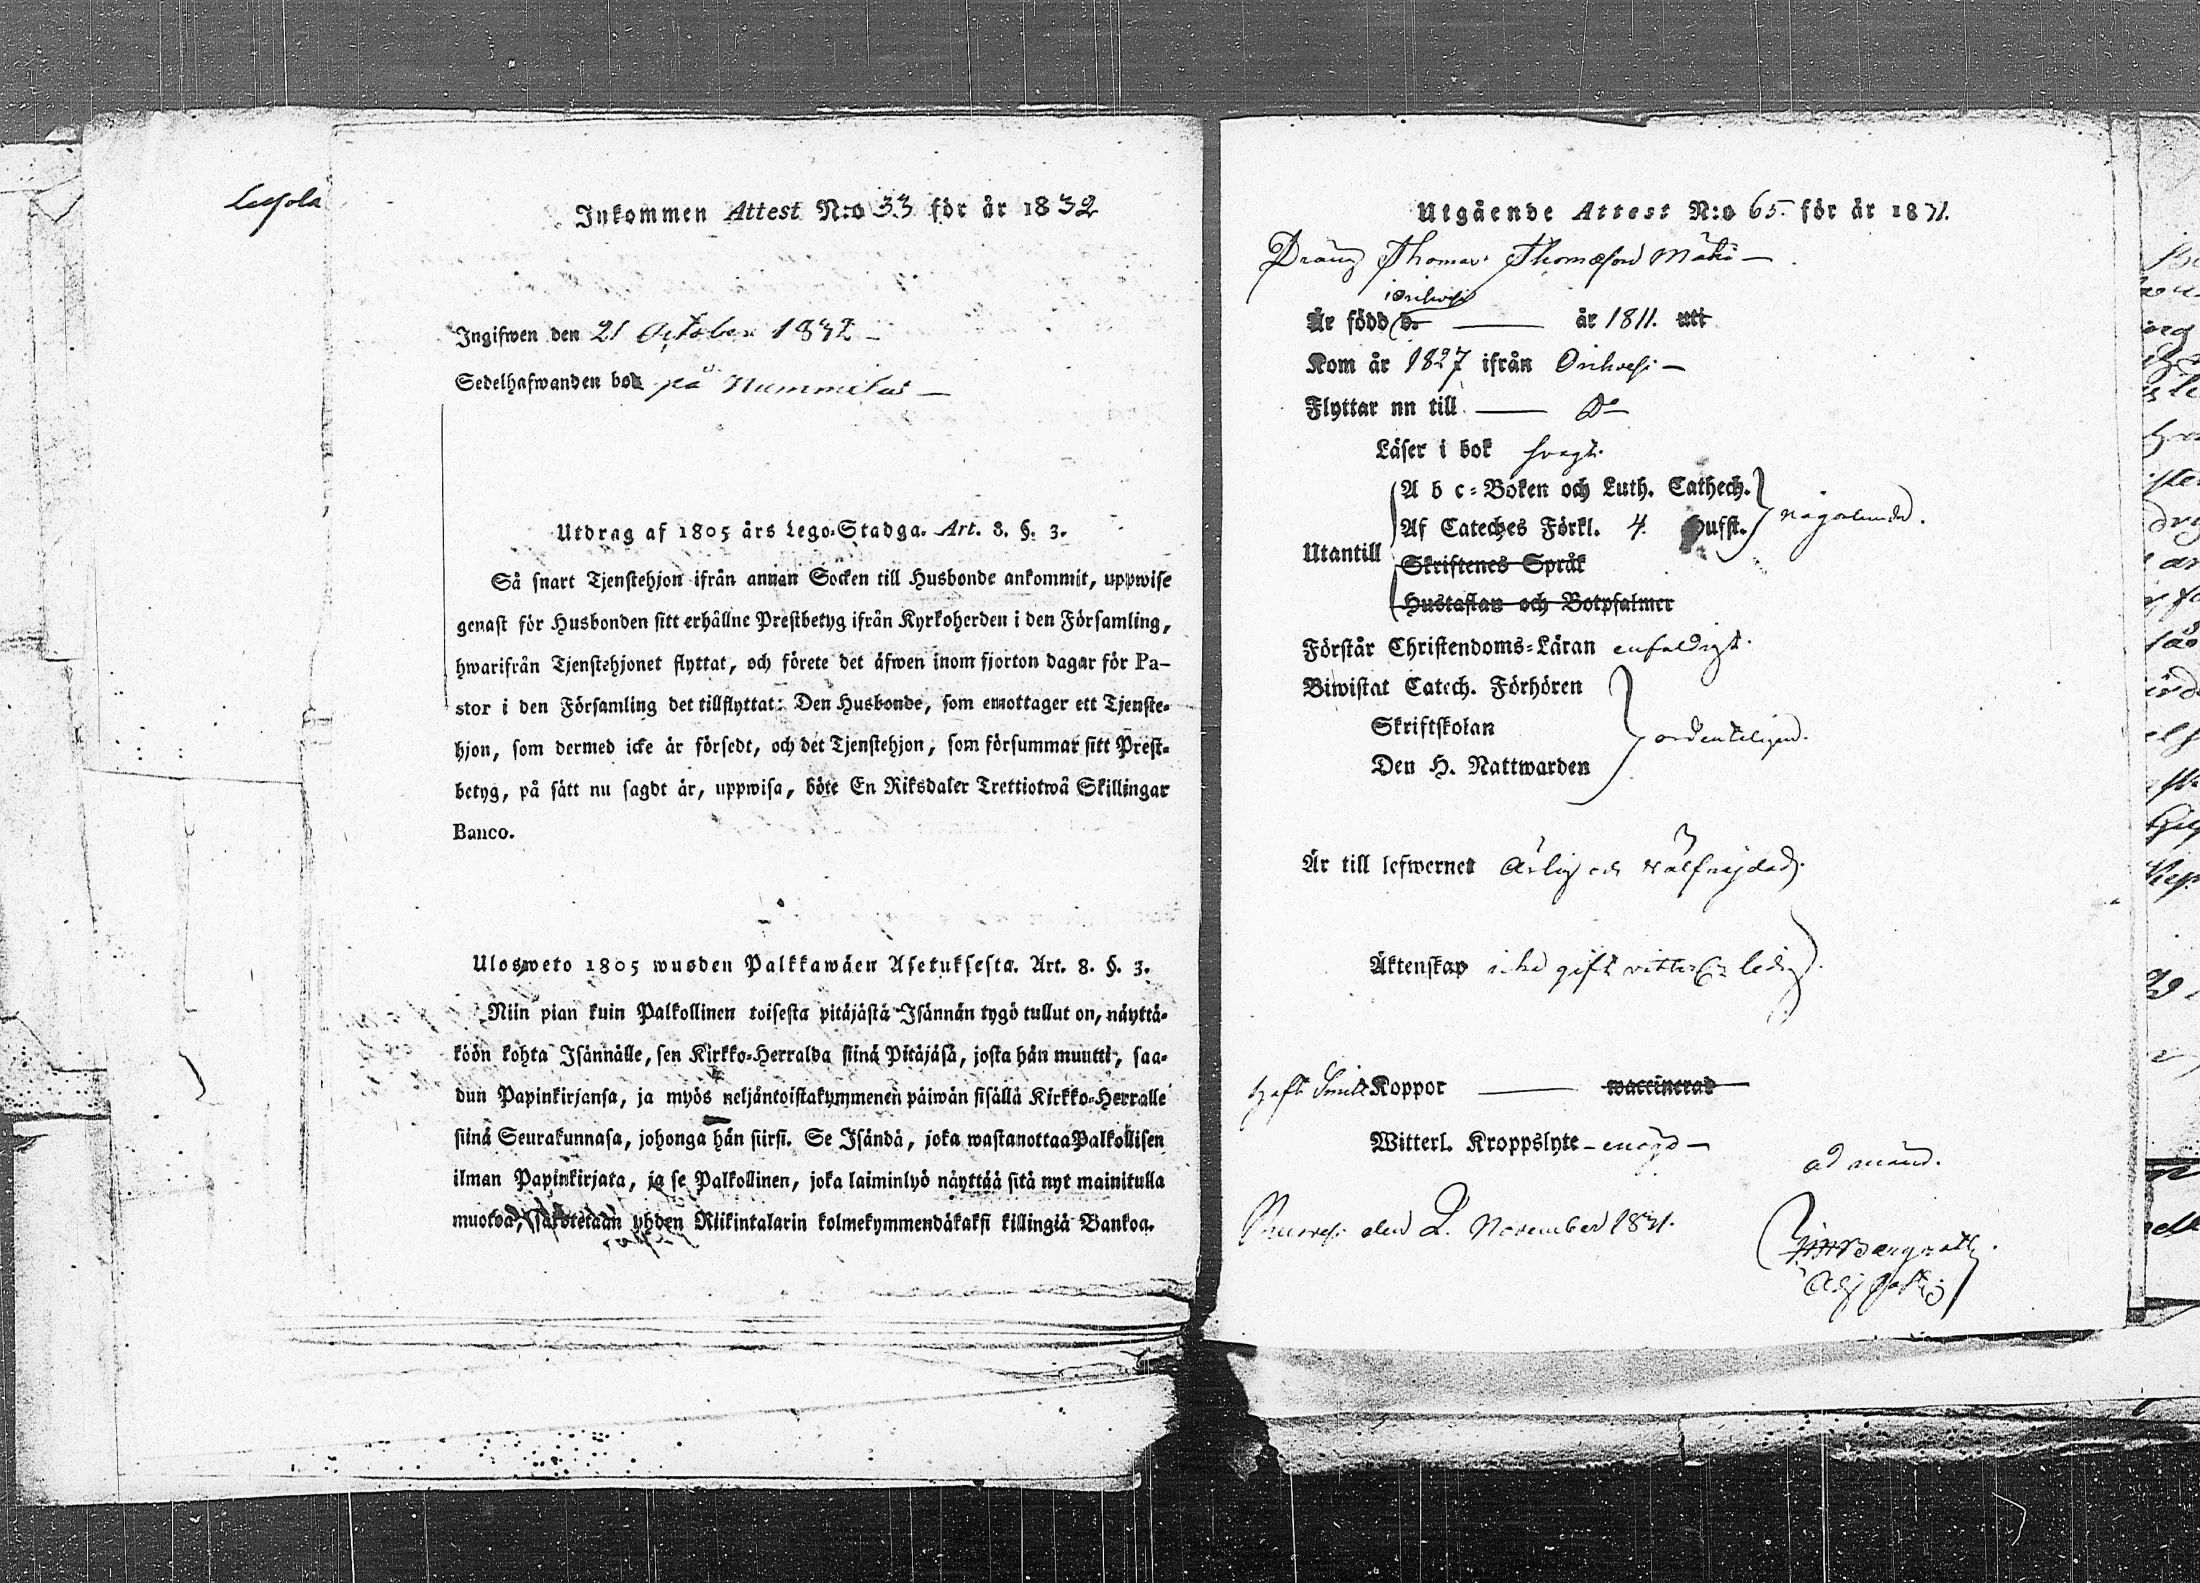 Inkommen Attest N:o 33 för år 1832
Ingifwen den 21 October 1832
Sedelhafwanden bor på Nummelus
Utdrag af 1805 års Lego-Stadga. Art. 8. §. 3.
Så snart Tjenstehjon ifrån annan Socken till Husbonde ankommit, uppwise
genast för Husbonden sitt erhållne Prestbetyg ifrån Kyrkoherden i den Församling,
hwarifrån Tjenstehjonet flyttat, och förete det äfwen inom fjorton dagar för Pa-
stor i den Församling det tillflyttat: Den Husbonde, som emottager ett Tjenste-
hjon, som dermed icke är försedt, och det Tjenstehjon, som försummar sitt Prest-
betyg, på sätt nu sagdt är, uppwisa, böte En Riksdaler Trettiotwå Skillingar
Banco.
Ulosweto 1805 wuoden Palkkawäen Asetuksesta. Art. 8. §. 3.
Niin pian kuin Palkollinen toisesta pitäjästä Isännän tygö tullut on, näyttä-
köön kohta Isännälle, sen Kirkko-Herralda siinä Pitäjäsä, josta hän muutti, saa-
dun Papinkirjansa, ja myös neljäntoistakymmenen päiwän sisällä Kirkko-Herralle
siinä Seurakunnasa, johonga hän siirsi. Se Isändä, joka wastanottaa Palkollisen
ilman Papinkirjata, ja se Palkollinen, joka laiminlyö näyttää sitä nyt mainitulla
muotoa, sakotetaan yhden Riikintalarin kolmekymmendäkaksi killingiä Bankoa.
Utgående Attest N:o 65. för år 1831.
Dräng Thomas Thomasson Mäki
i Orihvesi
Är född d. år 1811. uti
Kom år 1827 ifrån Orihvesi
Flyttar nn till Do
Läser i bok svagt.
A b c-Boken och Luth. Cathech.
Af Cateches Förkl. 4. Hufst. någorlunda.
Utantill
Skriftenes Språk
Hustaflan och Botpsalmer
Förstår Christendoms-Läran enfaldigt.
Biwistat Catech. Förhören
Skriftskolan ordenteligen.
Den H. Nattwarden
Är till lefwernet ärlig och välfrejdad.
Äktenskap icke gift vitterl. ledig.
haft Smitt Koppor waccinerad
Witterl. Kroppslyte
ad mand.
den 2. November 1831.